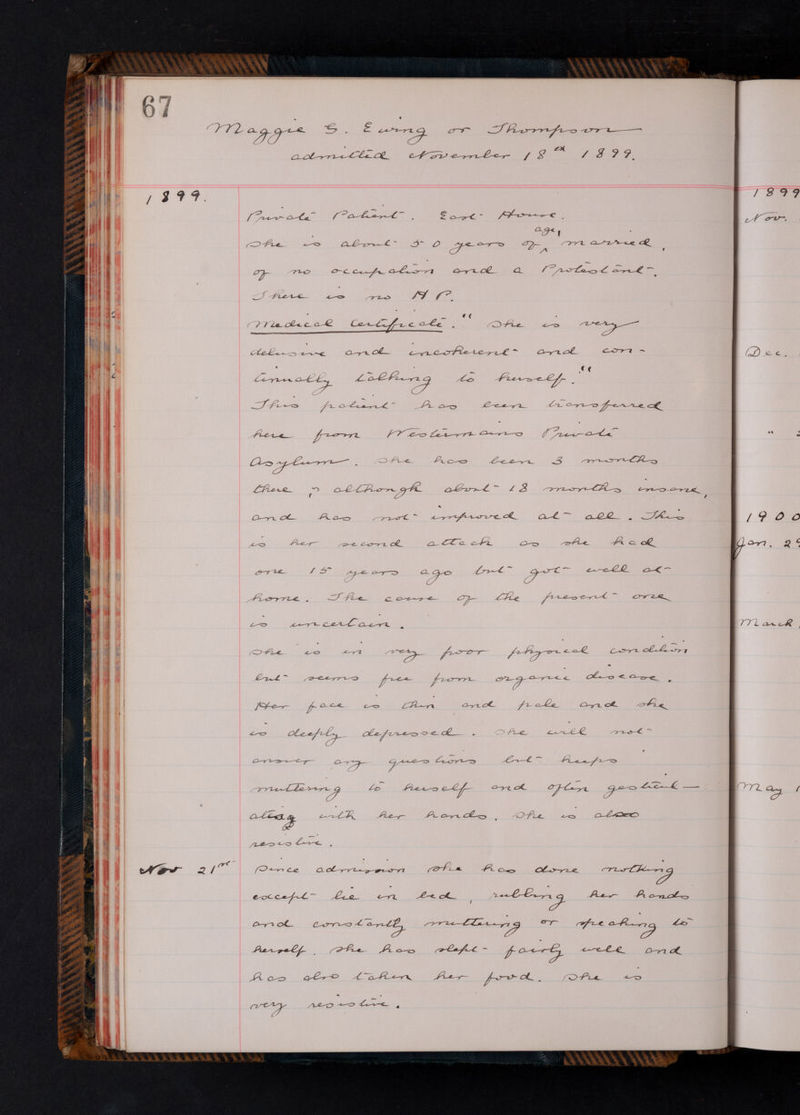 67
Maggie S. Ewing or Thompson
admitted November 18th 1899.
1899.
Private Patient. East House.
She is about 50 years of age, married,
of no occupation and a Protestant.
There is no H P.
Medical Certificate. "She is very
delusive and incoherent and con-
tinually talking to herself."
This patient has been transferred
here from Westermains Private
Asylum. She has been 3 months
there, although about 18 months insane,
and has not improved at all. This
is her second attack as she had
one 15 years ago but got well at
home. The cause of the present one
is uncertain.
She is in very poor physical condition
but seems free from organic disease.
Her face is thin and pale and she
is deeply depressed. She will not
answer any questions but keeps
muttering to herself and often gesticul-
ating with her hands. She is also
resistive.
Nov 21st Since admission she has done nothing
except lie in bed, rubbing her hands
and constantly muttering or speaking to
herself. She has slept fairly well and
has also taken her food. She is
very resistive.
1899
Nov.
Dec.
"
1900
Jan. 29
March
May